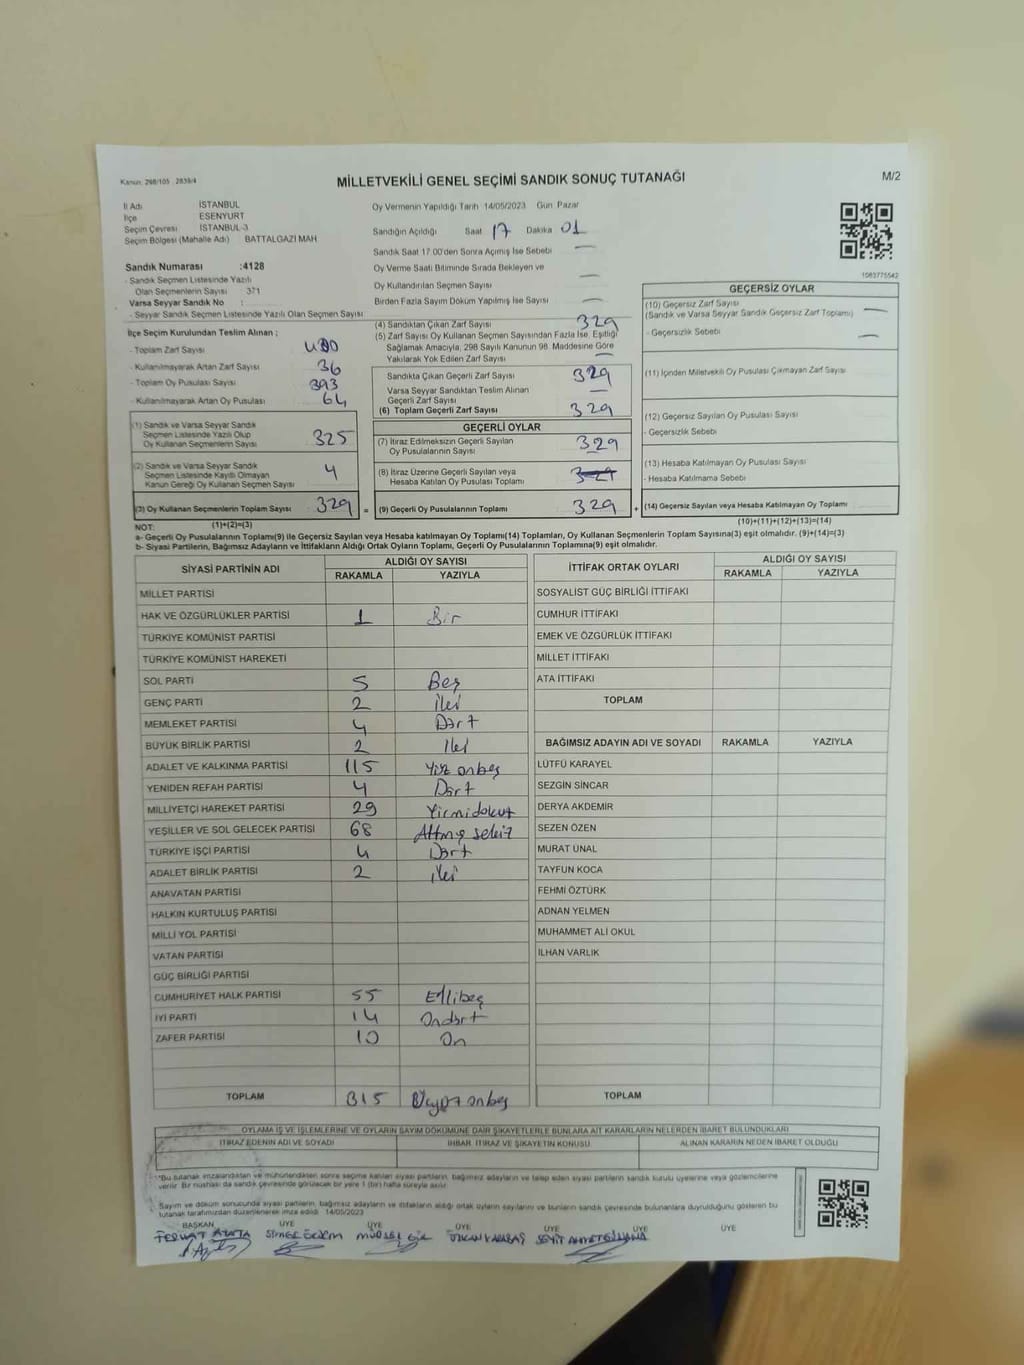 Kanun: 298/105 2839/4
MİLLETVEKİLİ GENEL SEÇİMİ SANDIK SONUÇ TUTANAĞI
M/2
İl Adı : İSTANBUL
İlçe : ESENYURT
Seçim Çevresi : İSTANBUL-3
Seçim Bölgesi (Mahalle Adı) : BATTALGAZİ MAH.
Oy Vermenin Yapıldığı Tarih 14/05/2023 Gün Pazar
Sandığın Açıldığı Saat 17 Dakika 01
Sandık Saat 17.00'den Sonra Açılmış İse Sebebi —
Oy Verme Saati Bitiminde Sırada Bekleyen ve
Oy Kullandırılan Seçmen Sayısı —
Birden Fazla Sayım Döküm Yapılmış İse Sayısı —
1083775542
Sandık Numarası :4128
- Sandık Seçmen Listesinde Yazılı
Olan Seçmenlerin Sayısı : 371
Varsa Seyyar Sandık No :
- Seyyar Sandık Seçmen Listesinde Yazılı Olan Seçmen Sayısı :
İlçe Seçim Kurulundan Teslim Alınan ;
- Toplam Zarf Sayısı
- Kullanılmayarak Artan Zarf Sayısı 36
- Toplam Oy Pusulası Sayısı 393
- Kullanılmayarak Artan Oy Pusulası 64
(1) Sandık ve Varsa Seyyar Sandık
Seçmen Listesinde Yazılı Olup
Oy Kullanan Seçmenlerin Sayısı 325
(2) Sandık ve Varsa Seyyar Sandık
Seçmen Listesinde Kayıtlı Olmayan
Kanun Gereği Oy Kullanan Seçmen Sayısı 4
(3) Oy Kullanan Seçmenlerin Toplam Sayısı 329 =
(1)+(2)=(3)
(4) Sandıktan Çıkan Zarf Sayısı 329
(5) Zarf Sayısı Oy Kullanan Seçmen Sayısından Fazla İse, Eşitliği
Sağlamak Amacıyla, 298 Sayılı Kanunun 98. Maddesine Göre
Yakılarak Yok Edilen Zarf Sayısı —
Sandıkta Çıkan Geçerli Zarf Sayısı 329
Varsa Seyyar Sandıktan Teslim Alınan
Geçerli Zarf Sayısı —
(6) Toplam Geçerli Zarf Sayısı 329
GEÇERLİ OYLAR
(7) İtiraz Edilmeksizin Geçerli Sayılan
Oy Pusulalarının Sayısı 329
(8) İtiraz Üzerine Geçerli Sayılan veya
Hesaba Katılan Oy Pusulası Toplamı
(9) Geçerli Oy Pusulalarının Toplamı 329 +
GEÇERSİZ OYLAR
(10) Geçersiz Zarf Sayısı
(Sandık ve Varsa Seyyar Sandık Geçersiz Zarf Toplamı) —
- Geçersizlik Sebebi —
(11) İçinden Milletvekili Oy Pusulası Çıkmayan Zarf Sayısı
(12) Geçersiz Sayılan Oy Pusulası Sayısı
- Geçersizlik Sebebi
(13) Hesaba Katılmayan Oy Pusulası Sayısı
- Hesaba Katılmama Sebebi
(14) Geçersiz Sayılan veya Hesaba Katılmayan Oy Toplamı
(10)+(11)+(12)+(13)=(14)
NOT:
a- Geçerli Oy Pusulalarının Toplamı(9) ile Geçersiz Sayılan veya Hesaba Katılmayan Oy Toplamı(14) Toplamları, Oy Kullanan Seçmenlerin Toplam Sayısına(3) eşit olmalıdır. (9)+(14)=(3)
b- Siyasi Partilerin, Bağımsız Adayların ve İttifakların Aldığı Ortak Oyların Toplamı, Geçerli Oy Pusulalarının Toplamına(9) eşit olmalıdır.
SİYASİ PARTİNİN ADI
ALDIĞI OY SAYISI
RAKAMLA YAZIYLA
MİLLET PARTİSİ
HAK VE ÖZGÜRLÜKLER PARTİSİ 1 Bir
TÜRKİYE KOMÜNİST PARTİSİ
TÜRKİYE KOMÜNİST HAREKETİ
SOL PARTİ 5 Beş
GENÇ PARTİ 2 iki
MEMLEKET PARTİSİ 4 Dört
BÜYÜK BİRLİK PARTİSİ 2 iki
ADALET VE KALKINMA PARTİSİ 115 Yüz onbeş
YENİDEN REFAH PARTİSİ 4 Dört
MİLLİYETÇİ HAREKET PARTİSİ 29 Yirmidokuz
YEŞİLLER VE SOL GELECEK PARTİSİ 68 Altmış sekiz
TÜRKİYE İŞÇİ PARTİSİ 4 Dört
ADALET BİRLİK PARTİSİ 2 iki
ANAVATAN PARTİSİ
HALKIN KURTULUŞ PARTİSİ
MİLLİ YOL PARTİSİ
VATAN PARTİSİ
GÜÇ BİRLİĞİ PARTİSİ
CUMHURİYET HALK PARTİSİ 55 Ellibeş
İYİ PARTİ 14 Ondört
ZAFER PARTİSİ 10 On
TOPLAM 315 Üçyüz onbeş
İTTİFAK ORTAK OYLARI
ALDIĞI OY SAYISI
RAKAMLA YAZIYLA
SOSYALİST GÜÇ BİRLİĞİ İTTİFAKI
CUMHUR İTTİFAKI
EMEK VE ÖZGÜRLÜK İTTİFAKI
MİLLET İTTİFAKI
ATA İTTİFAKI
TOPLAM
BAĞIMSIZ ADAYIN ADI VE SOYADI RAKAMLA YAZIYLA
LÜTFÜ KARAYEL
SEZGİN SİNCAR
DERYA AKDEMİR
SEZEN ÖZEN
MURAT ÜNAL
TAYFUN KOCA
FEHMİ ÖZTÜRK
ADNAN YELMEN
MUHAMMET ALİ OKUL
İLHAN VARLIK
TOPLAM
OYLAMA İŞ VE İŞLEMLERİNE VE OYLARIN SAYIM DÖKÜMÜNE DAİR ŞİKAYETLERLE BUNLARA AİT KARARLARIN NELERDEN İBARET BULUNDUKLARI
İTİRAZ EDENİN ADI VE SOYADI
İHBAR, İTİRAZ VE ŞİKAYETİN KONUSU
ALINAN KARARIN NEDEN İBARET OLDUĞU
*Bu tutanak imzalandıktan ve mühürlendikten sonra seçime katılan siyasi partilerin, bağımsız adayların ve talep eden siyasi partilerin sandık kurulu üyelerine veya gözlemcilerine
verilir. Bir nüshası da sandık çevresinde görülecek bir yere 1 (bir) hafta süreyle asılır.
Sayım ve döküm sonucunda siyasi partilerin, bağımsız adayların ve ittifakların aldığı ortak oyların sayılarını ve bunların sandık çevresinde bulunanlara duyrulduğunu gösteren bu
tutanak tarafımızdan düzenlenerek imza edildi. 14/05/2023
BAŞKAN ÜYE ÜYE ÜYE ÜYE ÜYE ÜYE